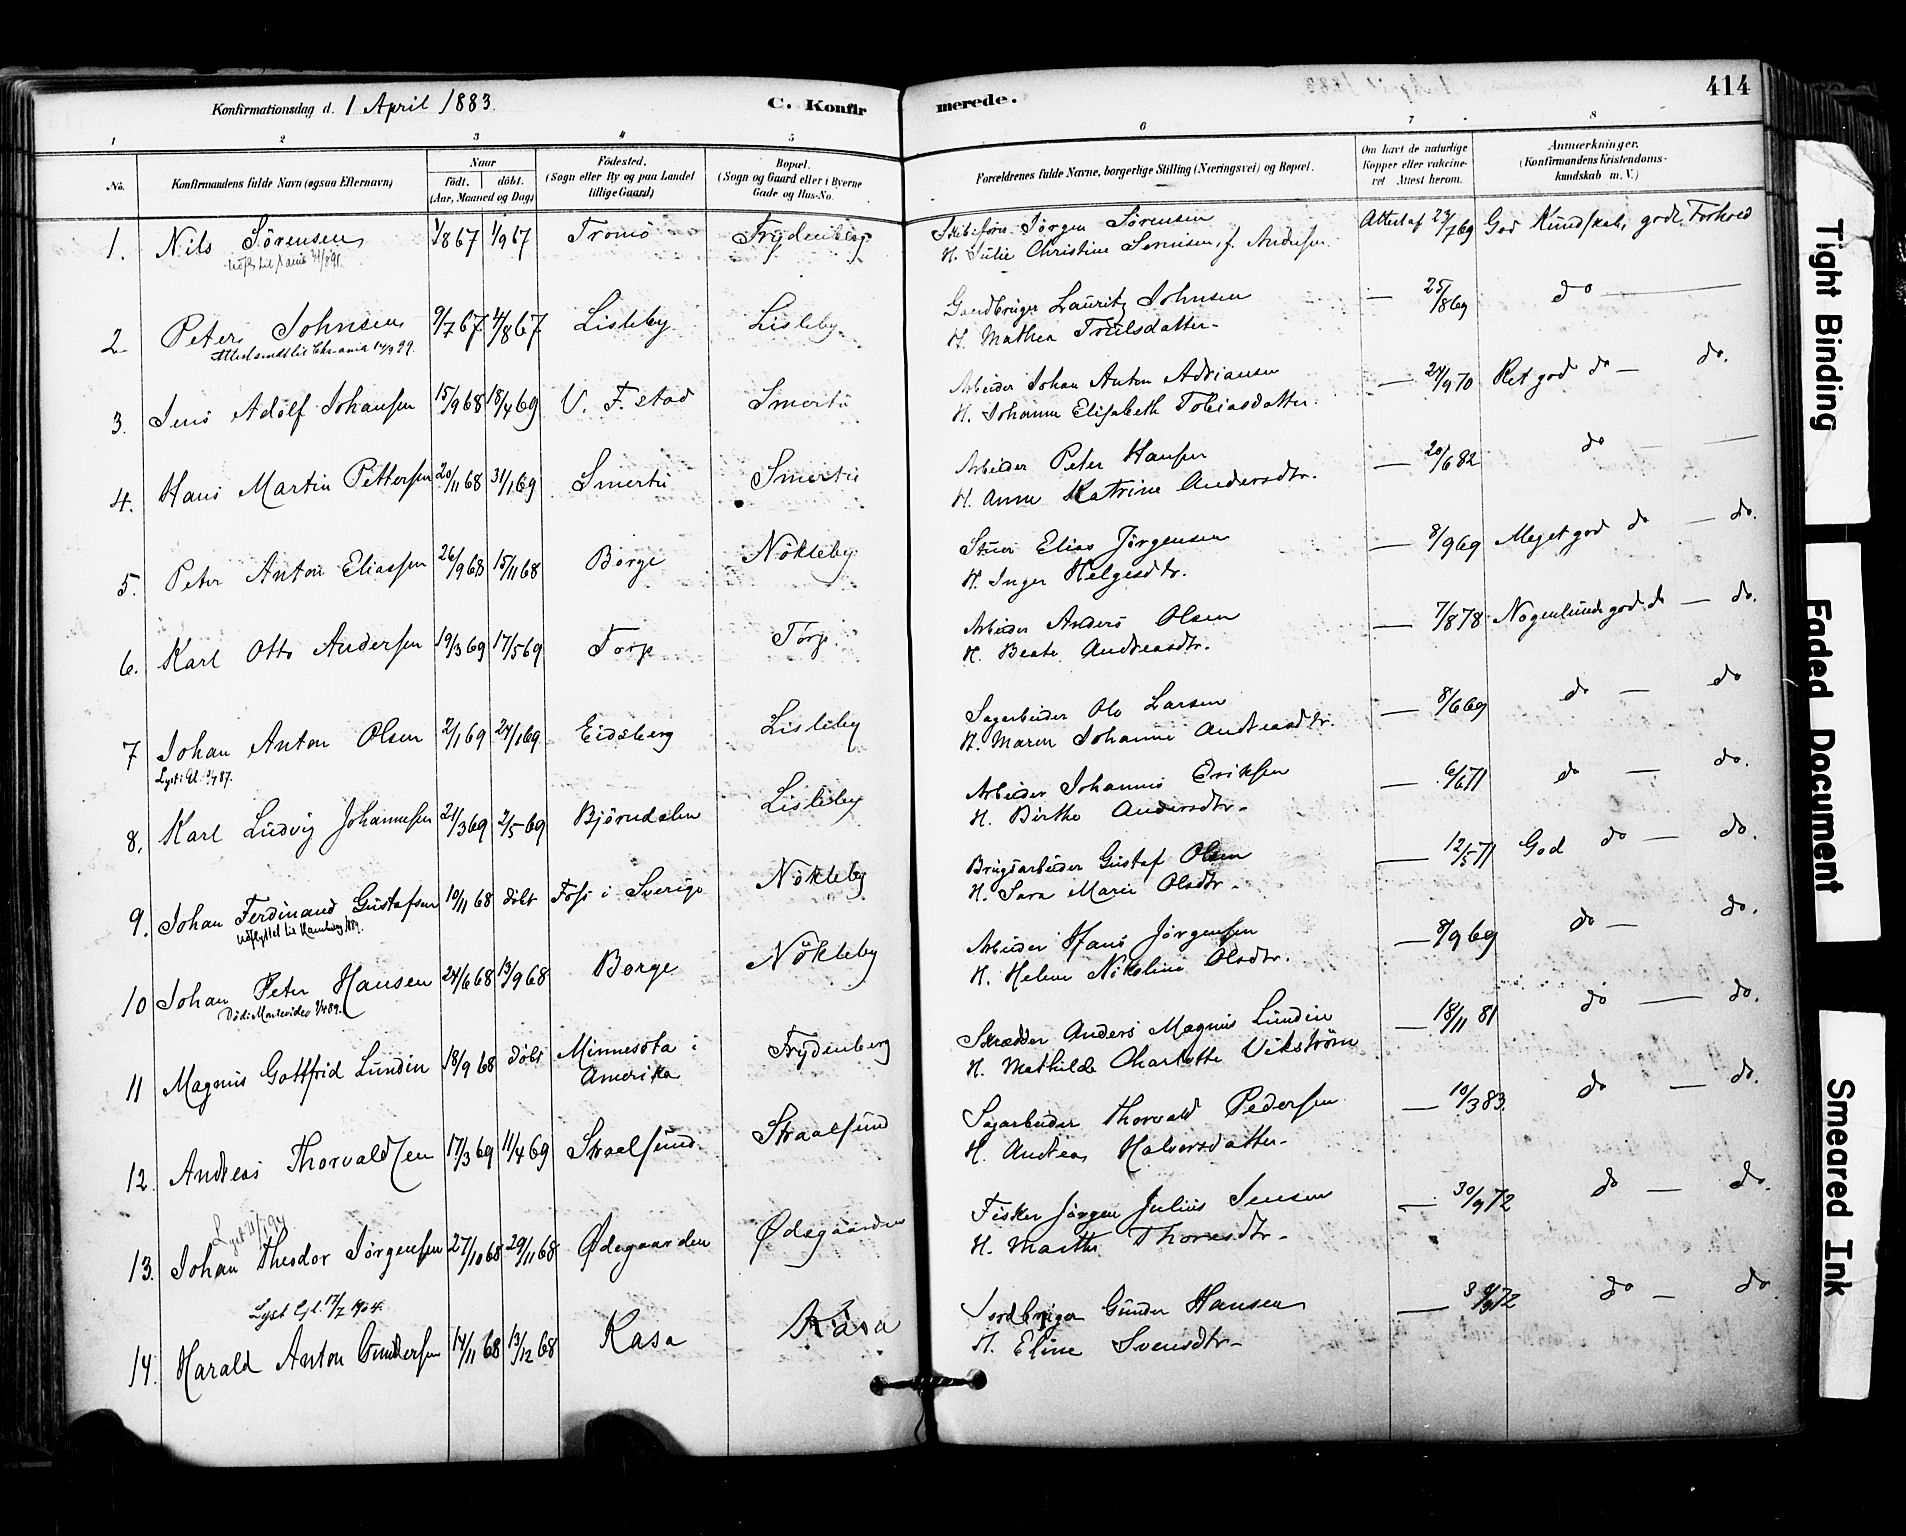 Konfirmationsdag d. 1 April 1883. C. Konfirmerede. 414
1 2 3 4 5 6 7 8
No. Konfirmandens fulde Navn (ogsaa Efternavn) Naar født. døbt. (Aar, Maaned og Dag) Fødested. (Sogn eller By og paa Landet tillige Gaard) Bopæl. (Sogn og Gaard eller i Byerne Gade og Hus-No. Forældrenes fulde Navne, borgerlige Stilling (Næringsvei) og Bopæl. Om havt de naturlige Kopper eller vakcineret Attest herom. Anmærkninger. (Konfirmandens Kristendomskundskab m. V.)
1. Nils Sörensen 1/8 67 1/9 67 Tromö Frydenberg Skibsförer Jörgen Sörensen Attest af 24/7 69 God Kundskab, godt Forhold
H. Julie Christine Sörensen, f. Andersen
2 Peter Johnsen 9/7 67 4/8 67 Lisleby Lisleby Gaardbruger Lauritz Johnsen — 25/8 69 do
Attest sendt til Chrania 14/9 99. H. Mathea Truelsdatter
3. Jens Adolf Johansen 15/9 68 18/4 69 V. F. stad Smertu Arbeider Johan Anton Adriansen — 24/9 70 Ret god do — do.
H. Johanne Elisabeth Tobiasdatter
4. Hans Martin Pettersen 20/11 68 31/1 69 Smertu Smertu Arbeider Peter Hansen — 20/6 82 do —
H. Anne Katrine Andersdtr.
5. Peter Anton Eliassen 26/9 68 15/11 68 Borge Nökleby Stuer Elias Jörgensen — 8/9 69 Meget god do — do.
H. Inger Helgesdtr.
6. Karl Otto Andersen 19/3 69 17/5 69 Torp Torp Arbeider Anders Olsen — 7/8 78 Nogenlunde god do — do.
H. Beate Andreasdtr.
7 Johan Anton Olsen 2/1 69 24/1 69 Eidsberg Lisleby Sagarbeider Ole Larsen — 8/6 69 do — do
H. Maren Johanne Andreasdtr.
8. Karl Ludvig Johannesen 21/3 69 2/5 69 Björndalen Lisleby Arbeider Johannes Eriksen — 6/6 71 do — do.
H. Birthe Andersdtr.
9. Johan Ferdinand Gustafsen 10/11 68 döbt Foss i Sverige Nökleby Brugsarbeider Gustaf Olsen — 12/5 71 God do — do.
Udflyttet til Hamburg 1889. H. Sara Marie Olsdtr.
10 Johan Peter Hansen 24/6 68 13/9 68 Borge Nökleby Arbeider Hans Jörgensen — 8/9 69 do — do.
Död i Montevideo 1/4 89. H. Helene Nikoline Olsdtr.
11 Magnus Gottfrid Lundin 18/9 68 döbt Minnesota i Amerika Frydenberg Skrædder Anders Magnus Lundin — 18/11 81 do — do.
H. Mathilde Charlotte Vikström
12. Andreas Thorvaldsen 17/3 69 11/4 69 Straalsund Straalsund Sagarbeider Thorvald Pedersen — 10/3 83. do — do.
H. Andrea Halvorsdatter
13. Johan Theodor Jörgensen 27/10 68 29/11 68 Ødegaarden Ødegaarden Fisker Jörgen Julius Jensen — 30/9 72 do — do.
H. Marthe Thoresdtr.
Lyst Gl. 17/7 1904.
14. Harald Anton Gundersen 14/11 68 13/12 68 Kasa Kasa Jordbruger Gunder Hansen — 30/9 72 do — do.
H. Eline Svensdtr.
Tight Binding
Faded Document
Smeared Ink